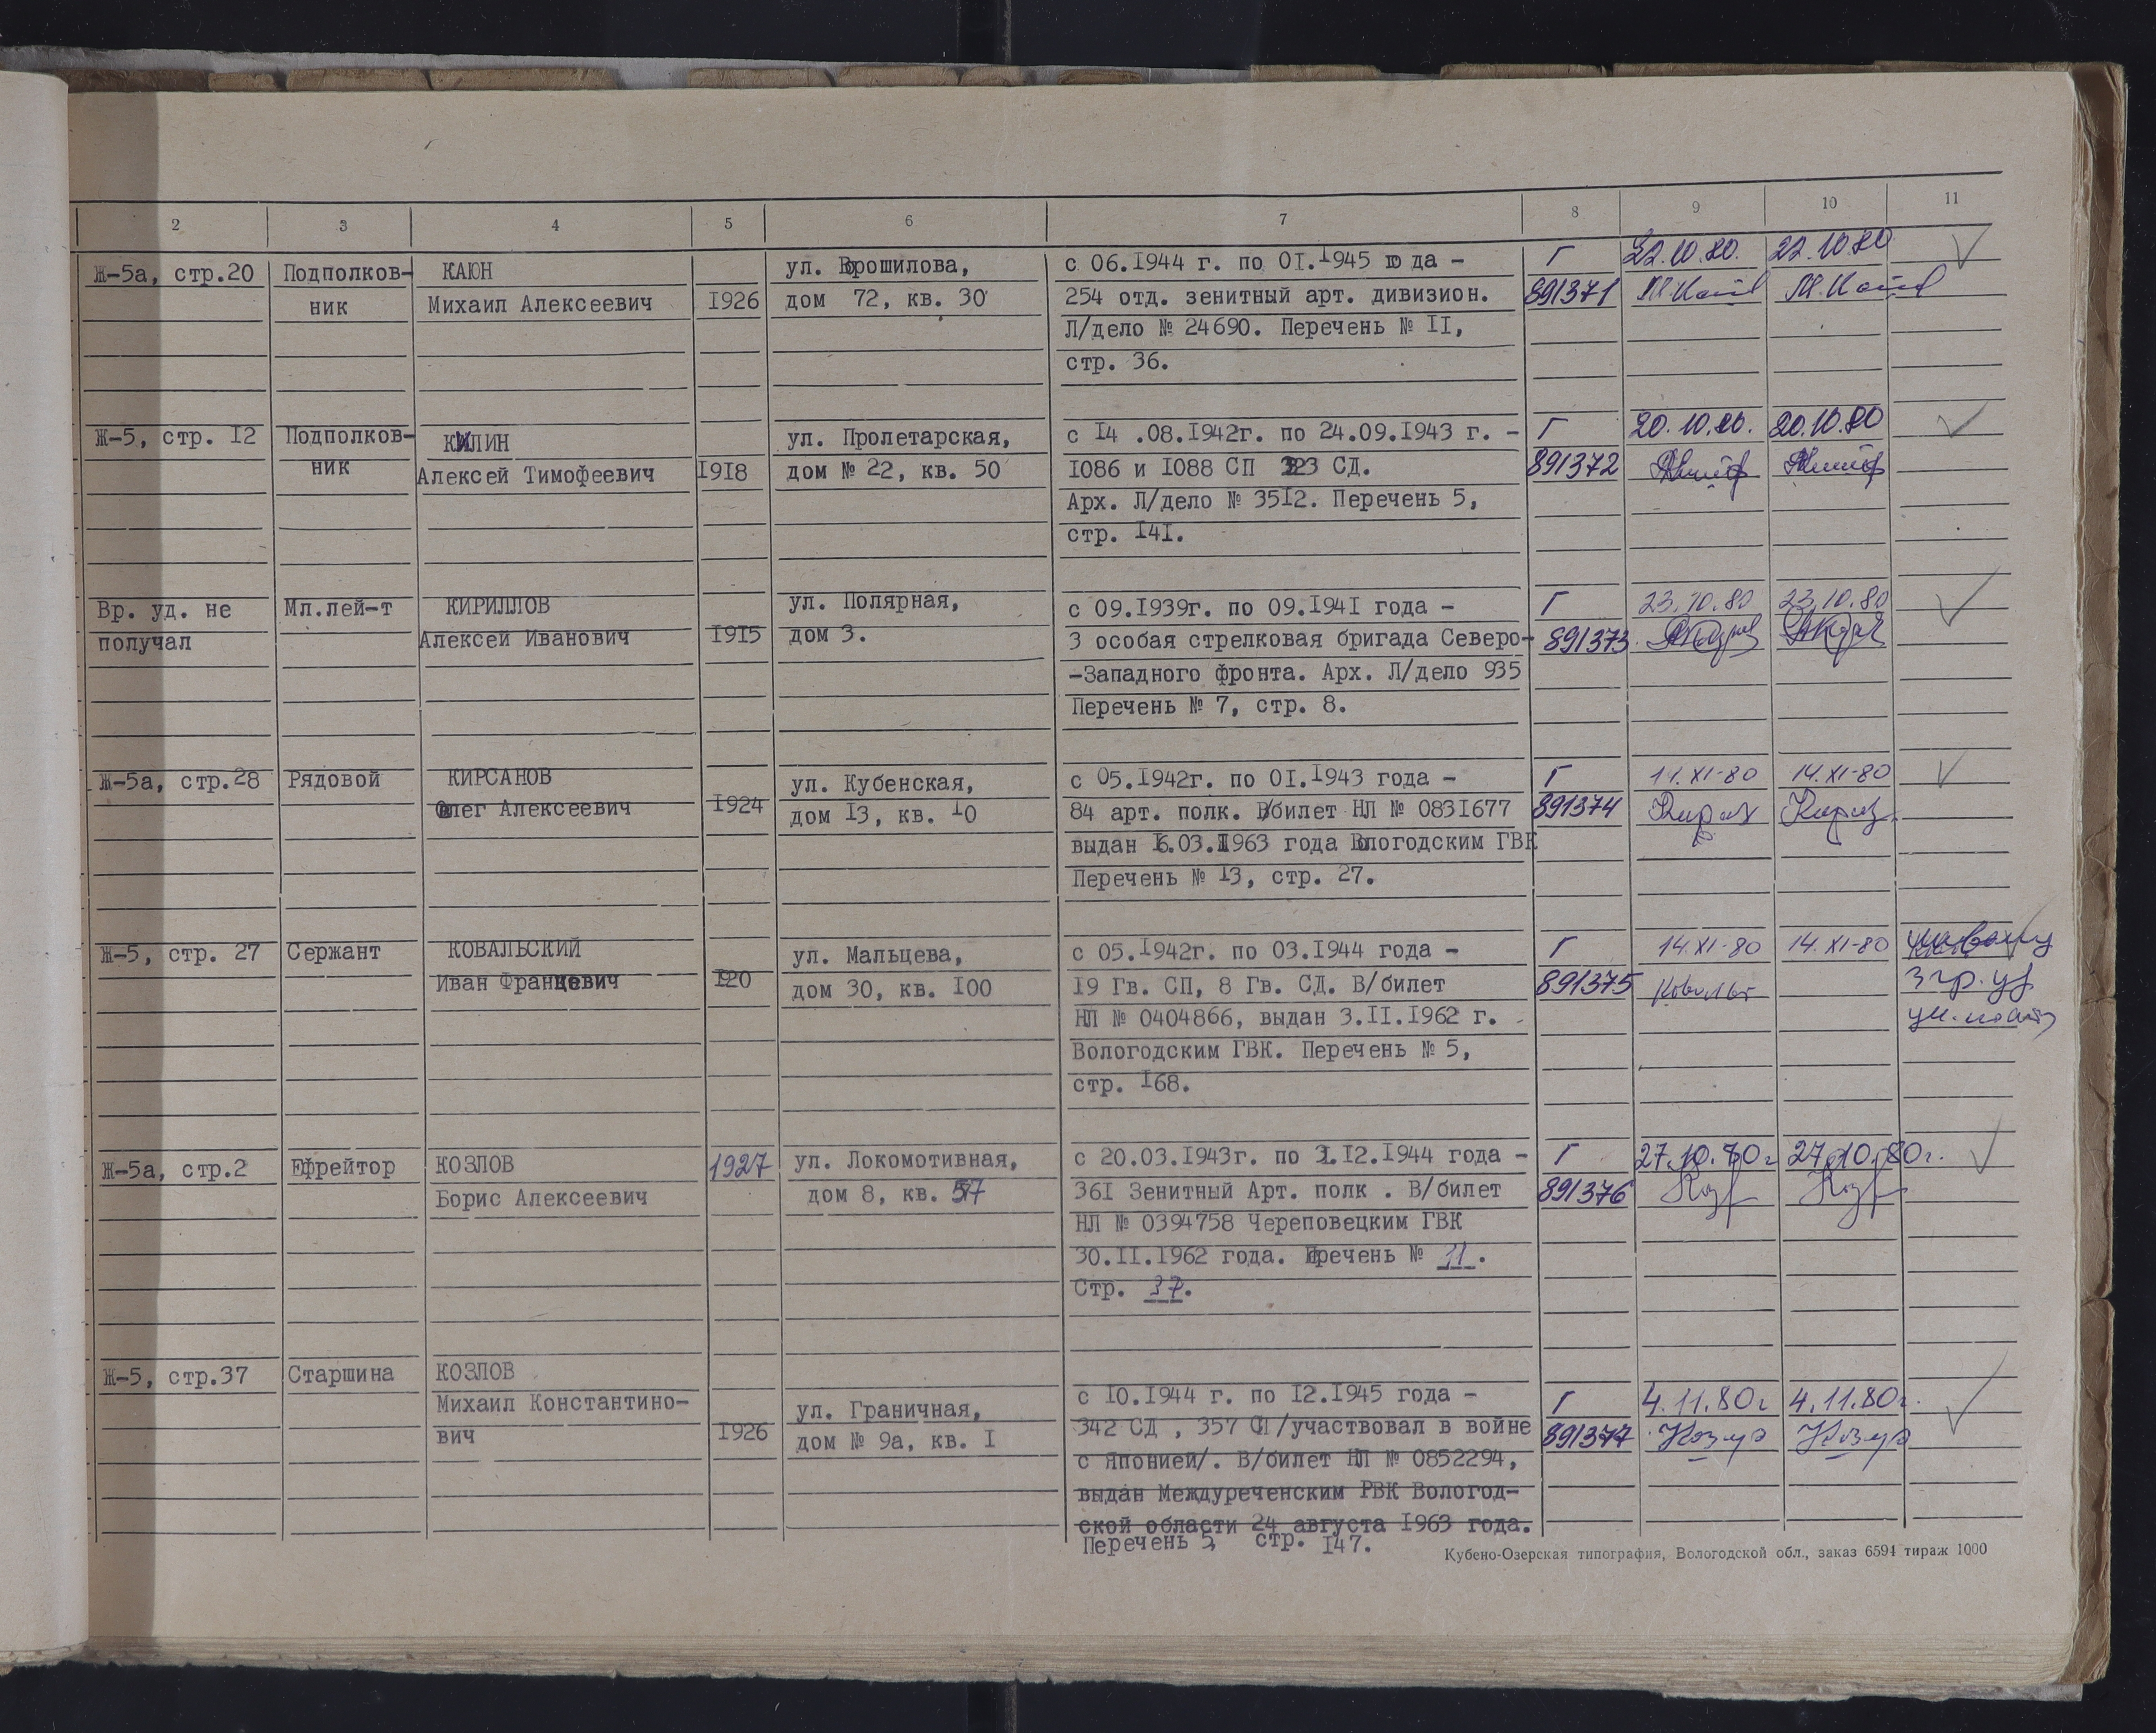 2 3 4 5 6 7 8 9 10 11
Ж-5а, стр.20 Подполков- КАЮН ул. Ворошилова, с 06.1944 г. по 01.1945 года - Г 22.10.80. 22.10.80
ник Михаил Алексеевич 1926 дом 72, кв. 30 254 отд. зенитный арт. дивизион. 891371
Л/дело № 24690. Перечень № II,
стр. 36.
Ж-5, стр. 12 Подполков- КИЛИН ул. Пролетарская, с 14 .08.1942г. по 24.09.1943 г. - Г 20.10.80. 20.10.80
ник Алексей Тимофеевич 1918 дом № 22, кв. 50 1086 и 1088 СП 323 СД. 891372
Арх. Л/дело № 3512. Перечень 5,
стр. 141.
Вр. уд. не Мл.лей-т КИРИЛЛОВ ул. Полярная, с 09.1939г. по 09.1941 года - Г 23.10.80 23.10.80
получал Алексей Иванович 1915 дом 3. 3 особая стрелковая бригада Северо- 891373
-Западного фронта. Арх. Л/дело 935
Перечень № 7, стр. 8.
Ж-5а, стр.28 Рядовой КИРСАНОВ ул. Кубенская, с 05.1942г. по 01.1943 года - Г 14.XI-80 14.XI-80
Олег Алексеевич 1924 дом 13, кв. 10 84 арт. полк. В/билет НЛ № 0831677 891374
выдан 16.03.1963 года Вологодским ГВК
Перечень № 13, стр. 27.
Ж-5, стр. 27 Сержант КОВАЛЬСКИЙ ул. Мальцева, с 05.1942г. по 03.1944 года - Г 14.XI-80 14.XI-80
Иван Францевич 120 дом 30, кв. 100 19 Гв. СП, 8 Гв. СД. В/билет 891375
НЛ № 0404866, выдан 3.II.1962 г.
Вологодским ГВК. Перечень № 5,
стр. 168.
Ж-5а, стр.2 Ефрейтор КОЗЛОВ 1927 ул. Локомотивная, с 20.03.1943г. по 31.12.1944 года - Г 27.10.70г 27.10.80г.
Борис Алексеевич дом 8, кв. 57 361 Зенитный Арт. полк . В/билет 891376
НЛ № 0394758 Череповецким ГВК
30.II.1962 года. Перечень № 11.
Стр. 37.
Ж-5, стр.37 Старшина КОЗЛОВ
Михаил Константино- ул. Граничная, с 10.1944 г. по 12.1945 года - Г 4.11.80г 4.11.80г.
вич 1926 дом № 9а, кв. I 342 СД , 357 СП /участвовал в войне 891377
с Японией/. В/билет НЛ № 0852294,
выдан Междуреченским РВК Вологод-
ской области 24 августа 1963 года.
Перечень 5, стр. 147.
Кубено-Озерская типография, Вологодской обл., заказ 6594 тираж 1000